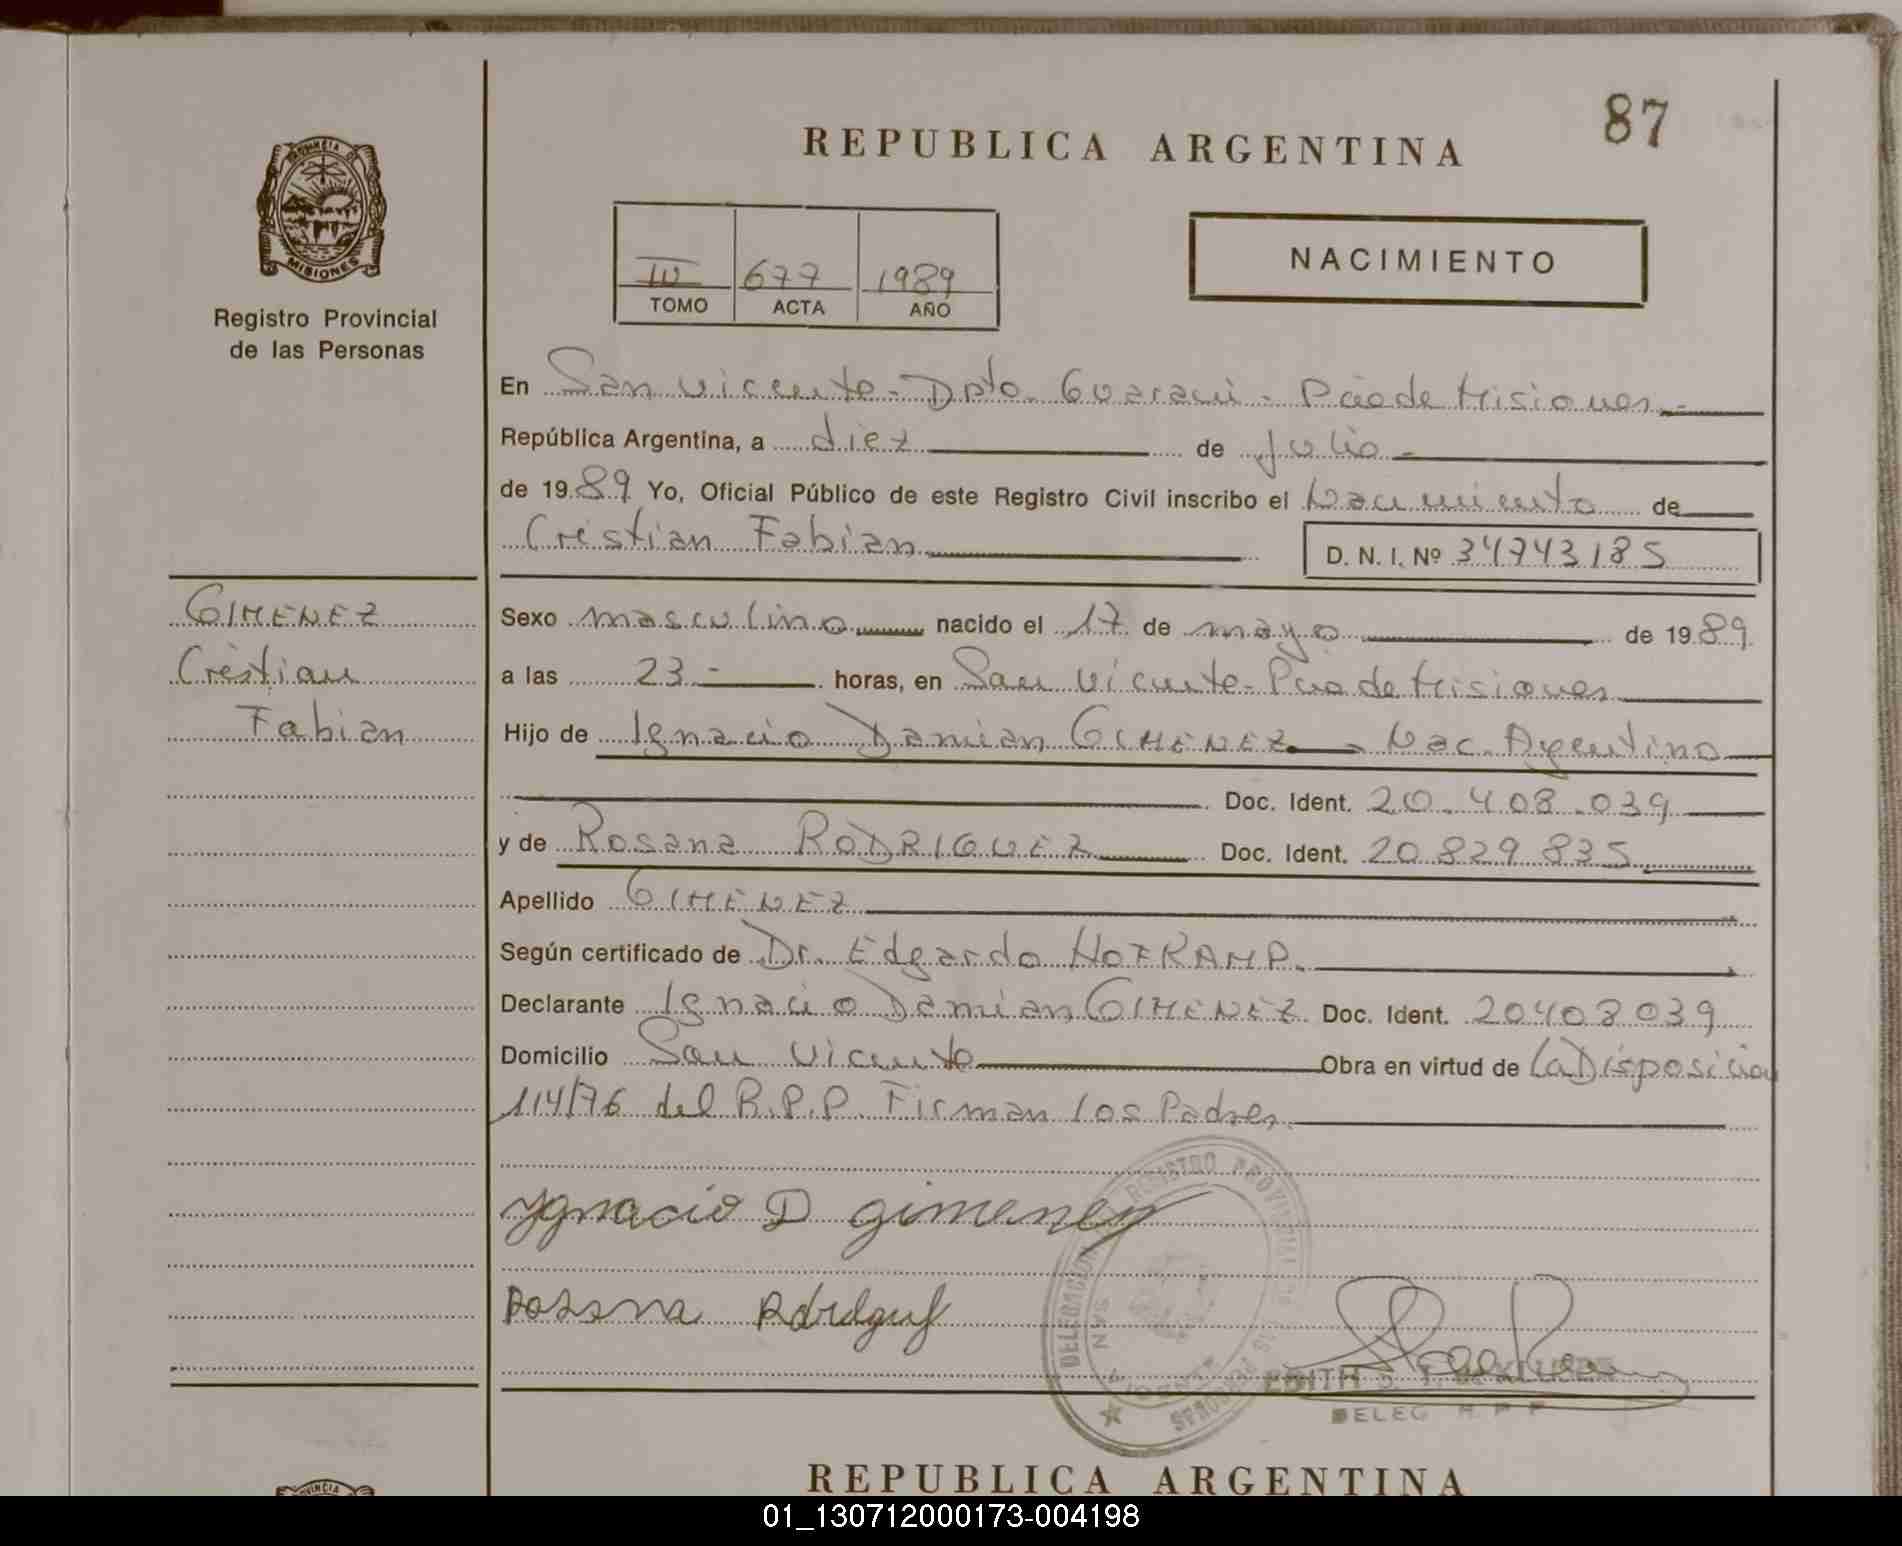 87
REPUBLICA ARGENTINA
PROVINCIA DE
MISIONES
Registro Provincial
de las Personas
III 677 1989
TOMO ACTA AÑO
NACIMIENTO
En San Vicente - Dpto Guaraní - Pcia de Misiones -
República Argentina, a diez de Julio -
de 1989 Yo, Oficial Público de este Registro Civil inscribo el Nacimiento de
Cristian Fabian D. N. I. Nº 34743185
GIMENEZ
Cristian
Fabian
Sexo masculino nacido el 17 de mayo de 1989
a las 23 - horas, en San Vicente - Pcia de Misiones
Hijo de Ignacio Damian GIMENEZ - Nac. Argentino
Doc. Ident. 20.408.039
y de Rosana RODRIGUEZ Doc. Ident. 20829835
Apellido GIMENEZ
Según certificado de Dr. Edgardo HOFKAMP.
Declarante Ignacio Damian GIMENEZ Doc. Ident. 20408039
Domicilio San Vicente Obra en virtud de La Disposicion
114/76 del R.P.P. Firman los Padres.
Ygnacio D gimenez
Rosana
DELEGACION REGISTRO PROVINCIAL DE LAS PERSONAS
SAN VICENTE
EDITH
DELEG R P P
REPUBLICA ARGENTINA
01_130712000173-004198